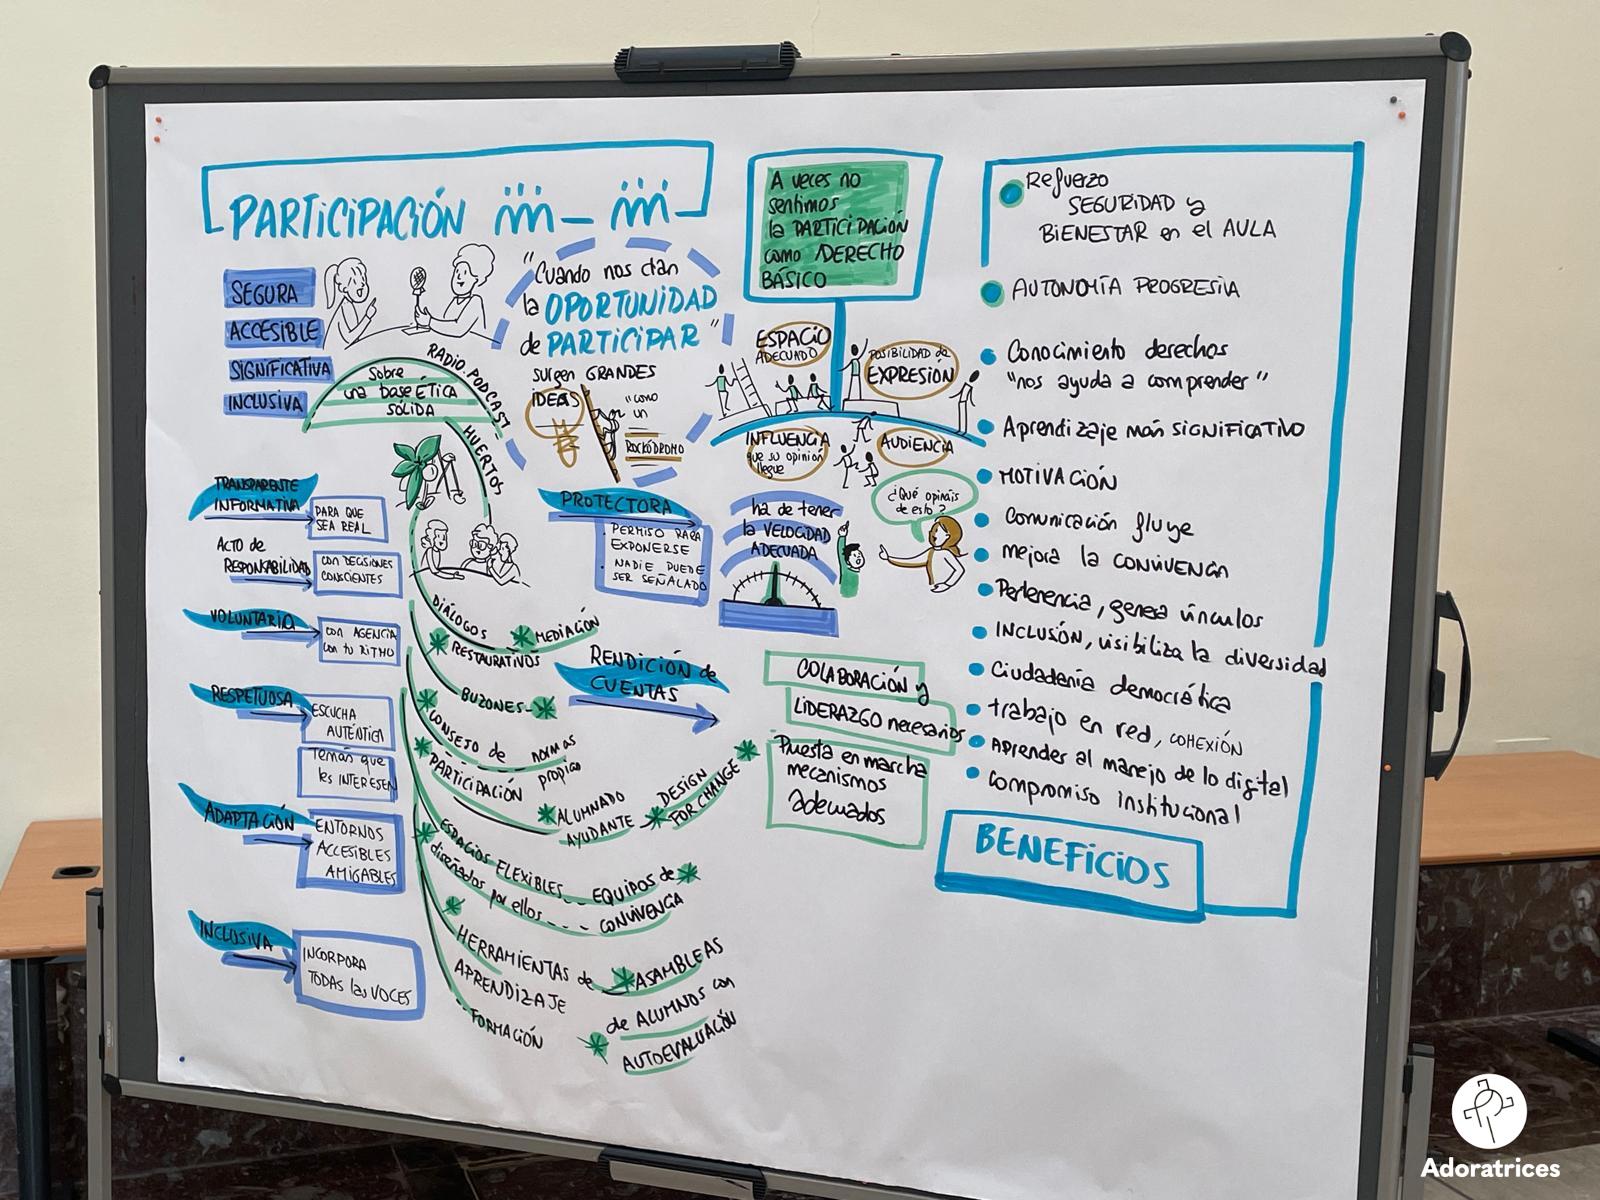 PARTICIPACIÓN
SEGURA
ACCESIBLE
SIGNIFICATIVA
INCLUSIVA
Sobre
una base ÉTICA
SÓLIDA
RADIO. PODCAST
HUERTOS
"Cuando nos dan
la OPORTUNIDAD
de PARTICIPAR"
surgen GRANDES
IDEAS
"como
un
ROCÓDROMO
TRANSPARENTE
INFORMATIVA
PARA QUE
SEA REAL
ACTO de
RESPONSABILIDAD
CON DECISIONES
CONSCIENTES
VOLUNTARIA
CON AGENCIA
con tu RITMO
RESPETUOSA
ESCUCHA
AUTÉNTICA
Temas que
les INTERESEN
ADAPTACIÓN
ENTORNOS
ACCESIBLES
AMIGABLES
INCLUSIVA
INCORPORA
TODAS las VOCES
PROTECTORA
. PERMISO PARA
EXPONERSE
. NADIE PUEDE
SER SEÑALADO
DIÁLOGOS
RESTAURATIVOS
MEDIACIÓN
BUZONES
CONSEJO de normas
PARTICIPACIÓN propias
ALUMNADO
AYUDANTE
DESIGN
FOR CHANGE
ESPACIOS FLEXIBLES
diseñados por ellos
EQUIPOS de
CONVIVENCIA
HERRAMIENTAS de
APRENDIZAJE
FORMACIÓN
ASAMBLEAS
de ALUMNOS con
AUTOEVALUACIÓN
RENDICIÓN de
CUENTAS
A veces no
sentimos
la PARTICIPACIÓN
como DERECHO
BÁSICO
ESPACIO
ADECUADO
POSIBILIDAD de
EXPRESIÓN
INFLUENCIA
que su opinión
llegue
AUDIENCIA
ha de tener
la VELOCIDAD
ADECUADA
¿Qué opináis
de esto?
COLABORACIÓN y
LIDERAZGO necesarios
Puesta en marcha
mecanismos
Adecuados
Refuerzo
SEGURIDAD y
BIENESTAR en el AULA
AUTONOMÍA PROGRESIVA
Conocimiento derechos
"nos ayuda a comprender"
Aprendizaje más SIGNIFICATIVO
MOTIVACIÓN
Comunicación fluye
mejora la CONVIVENCIA
Pertenencia, genera vínculos
INCLUSIÓN, visibiliza la diversidad
Ciudadanía democrática
trabajo en red, COHEXIÓN
Aprender al manejo de lo digital
compromiso institucional
BENEFICIOS
Adoratrices